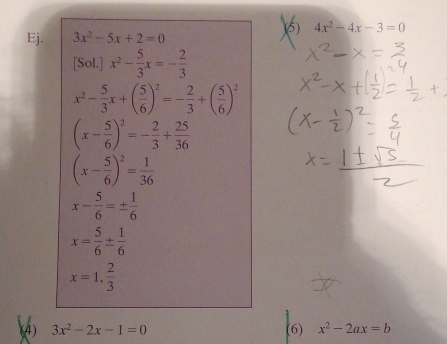 Ej.
3x² - 5x + 2 = 0
[Sol.] x² - 5/3 x = -2/3
x² - 5/3 x + (5/6)² = -2/3 + (5/6)²
(x - 5/6)² = -2/3 + 25/36
(x - 5/6)² = 1/36
x - 5/6 = ± 1/6
x = 5/6 ± 1/6
x = 1, 2/3
(4) 3x² - 2x - 1 = 0
(5) 4x² - 4x - 3 = 0
x² - x = 3/4
x² - x + (1/2)² = 1/2 +
(x - 1/2)² = 5/4
x = 1 ± √5 / 2
(6) x² - 2ax = b